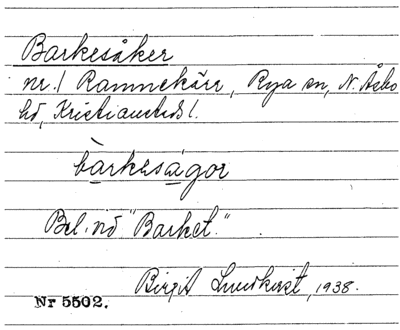 Barkesåker
nr. 1 Ramnekärr, Rya sn, N. Åsbo
hd, Kristianstads l.
bàrkəsàgor
Bel. vid "Barket."
Birgit Lundkvist, 1938.
Nr 5502.